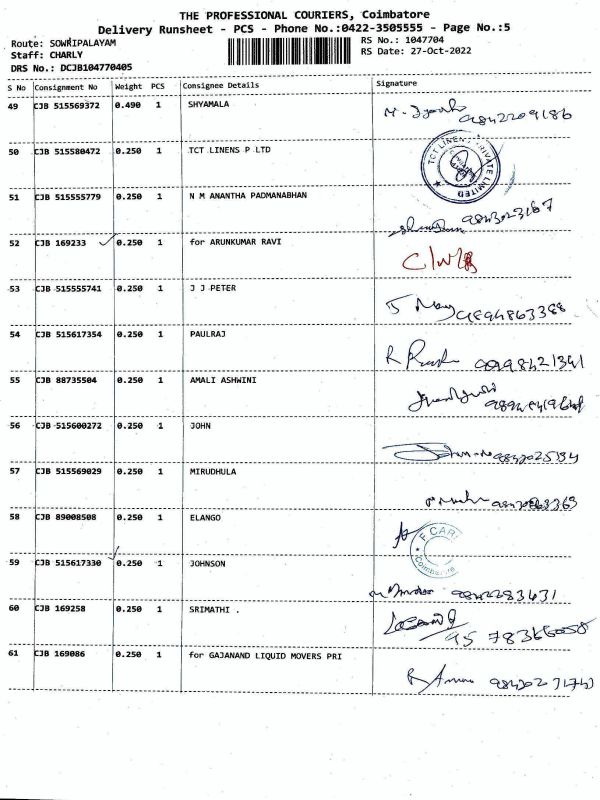 THE PROFESSIONAL COURIERS, Coimbatore
Delivery Runsheet - PCS - Phone No.:0422-3505555 - Page No.:5
Route: SOWRIPALAYAM
RS No.: 1047704
Staff: CHARLY
RS Date: 27-Oct-2022
DRS No.: DCJB104770405
S No Consignment No Weight PCS Consignee Details Signature
49 CJB 515569372 0.490 1 SHYAMALA 9842209186
50 CJB 515580472 0.250 1 TCT LINENS P LTD TCT LINENS PRIVATE LIMITED
51 CJB 515555779 0.250 1 N M ANANTHA PADMANABHAN 9843023167
52 CJB 169233 0.250 1 for ARUNKUMAR RAVI
53 CJB 515555741 0.250 1 J J PETER 9894863388
54 CJB 515617354 0.250 1 PAULRAJ
55 CJB 88735504 0.250 1 AMALI ASHWINI
56 CJB 515600272 0.250 1 JOHN
57 CJB 515569029 0.250 1 MIRUDHULA
58 CJB 89008508 0.250 1 ELANGO
59 CJB 515617330 0.250 1 JOHNSON 9842283431
60 CJB 169258 0.250 1 SRIMATHI . 95 78366058
61 CJB 169086 0.250 1 for GAJANAND LIQUID MOVERS PRI